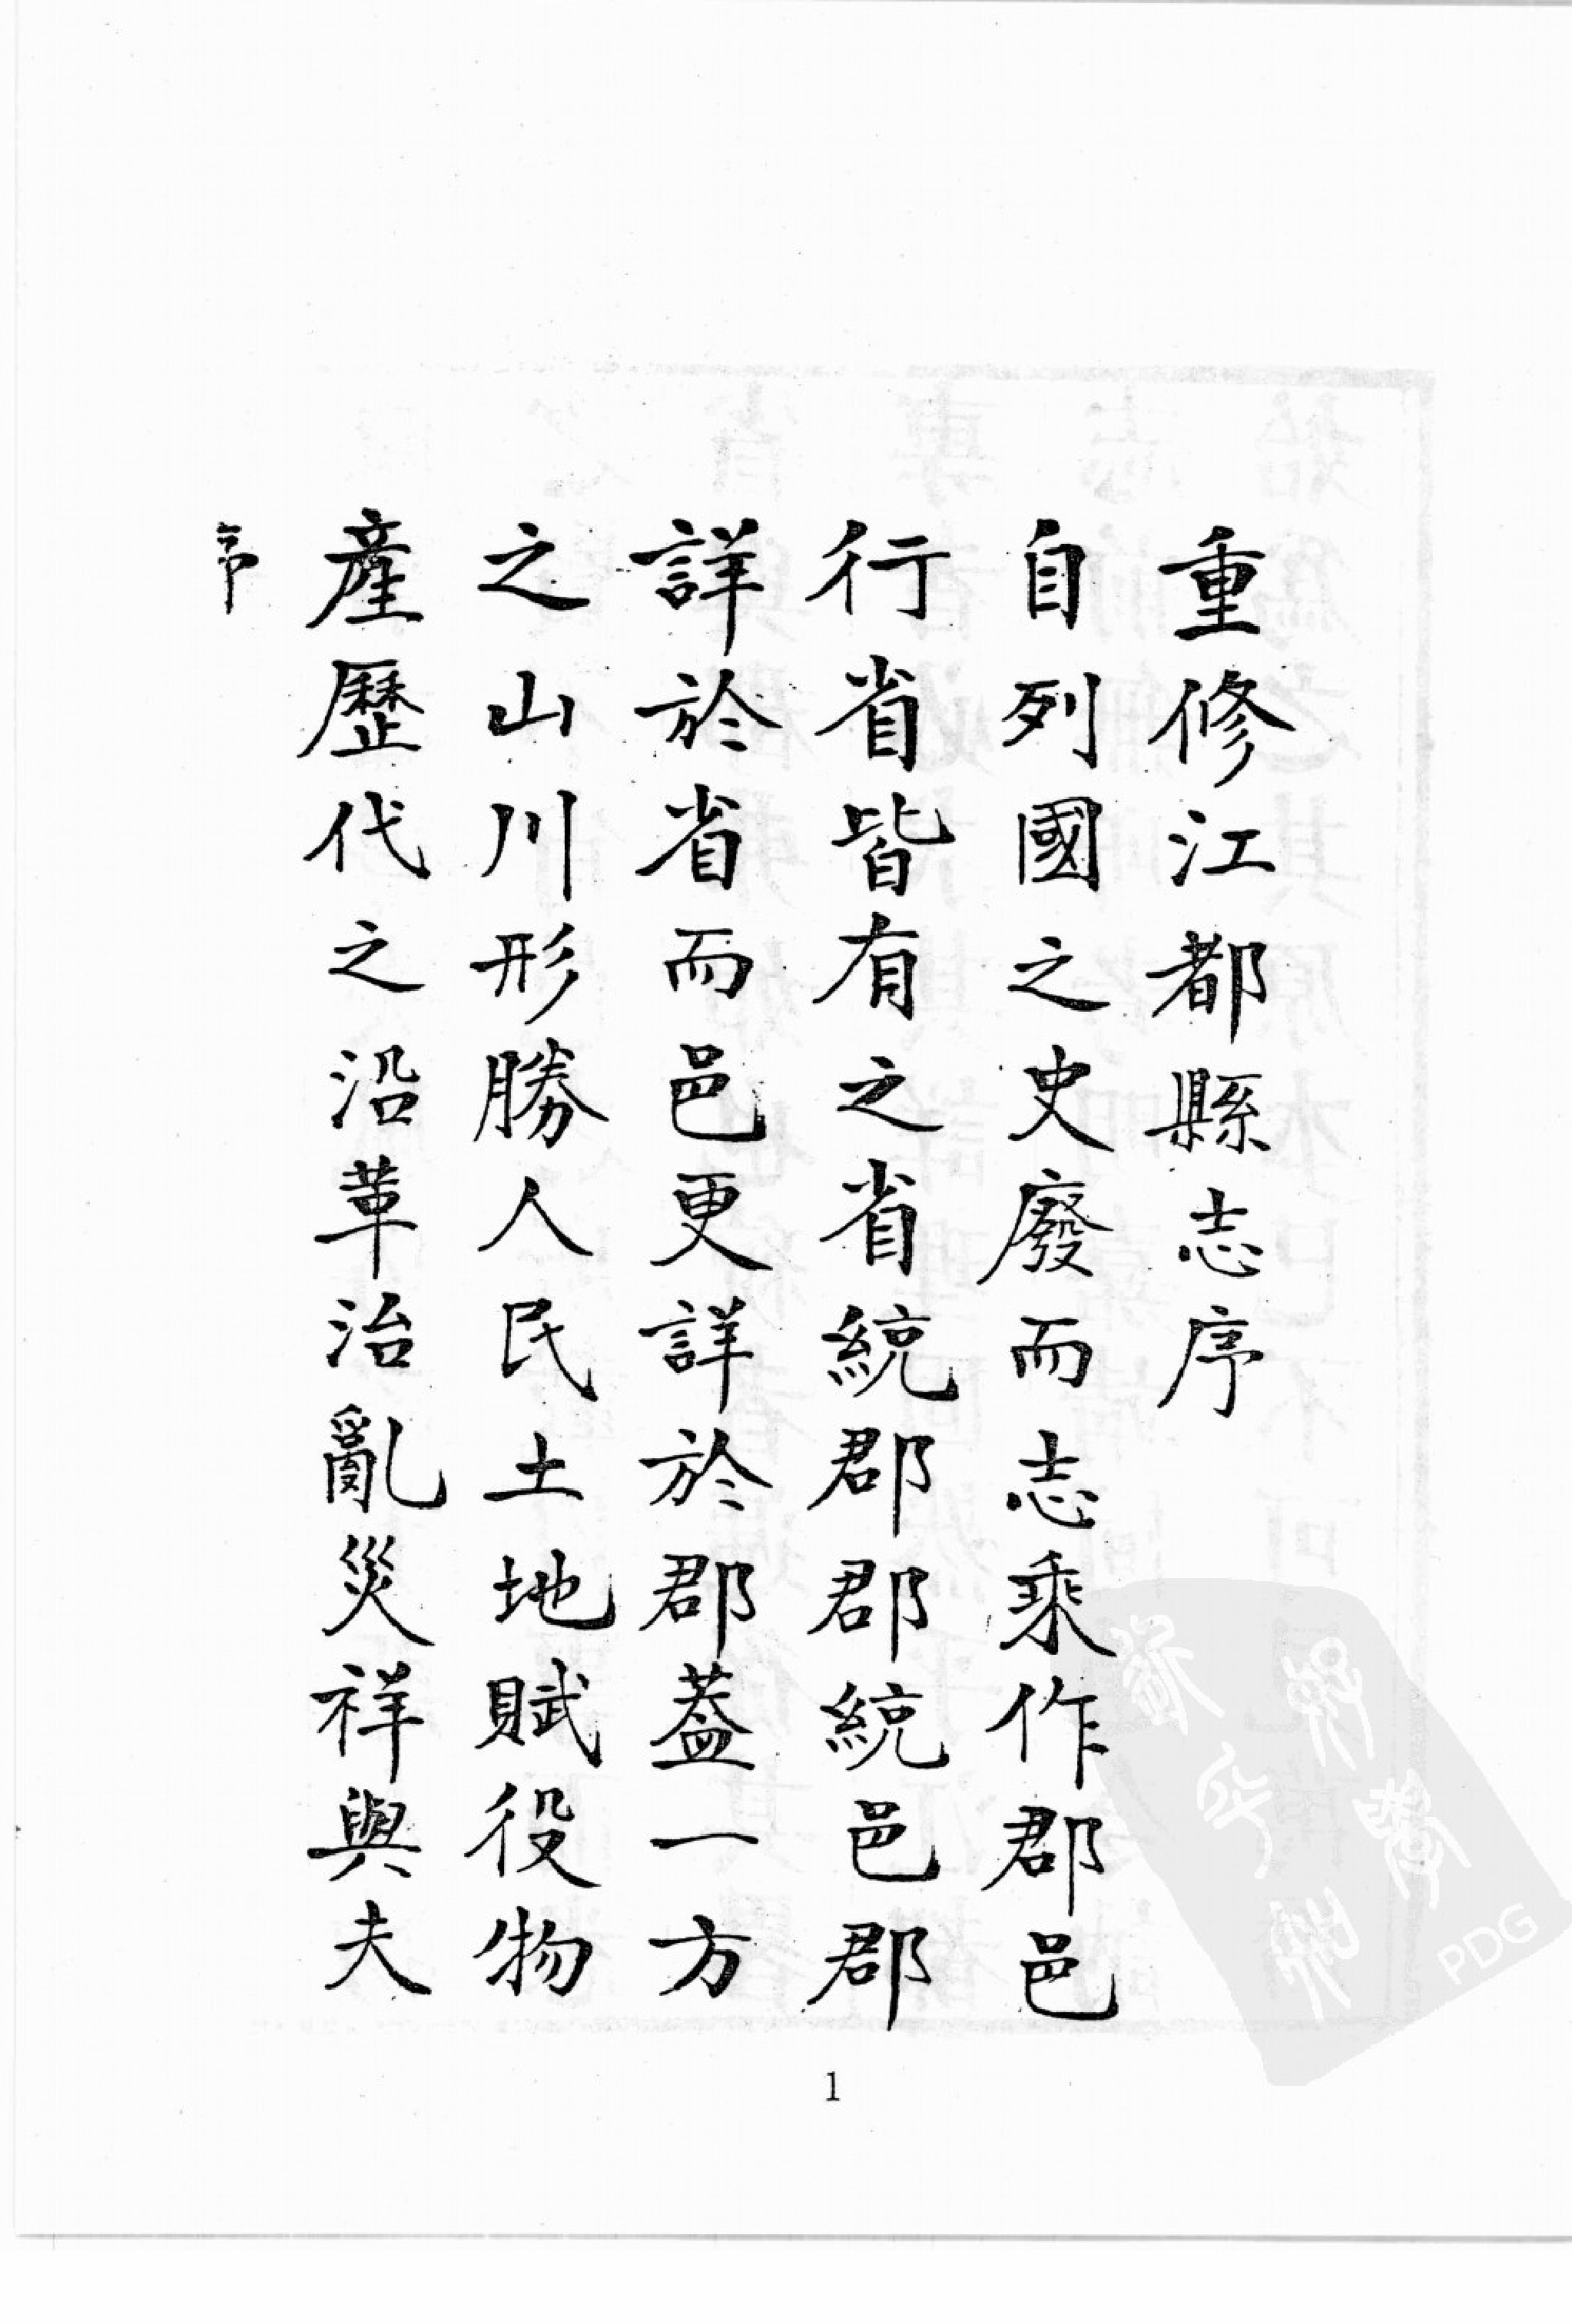 重修江都縣志序
自列國之史廢而志乘作郡邑
行省皆有之省統郡郡統邑郡
詳於省而邑更詳於郡蓋一方
之山川形勝人民土地賦役物
產歷代之沿革治亂災祥與夫
序
1
PDG